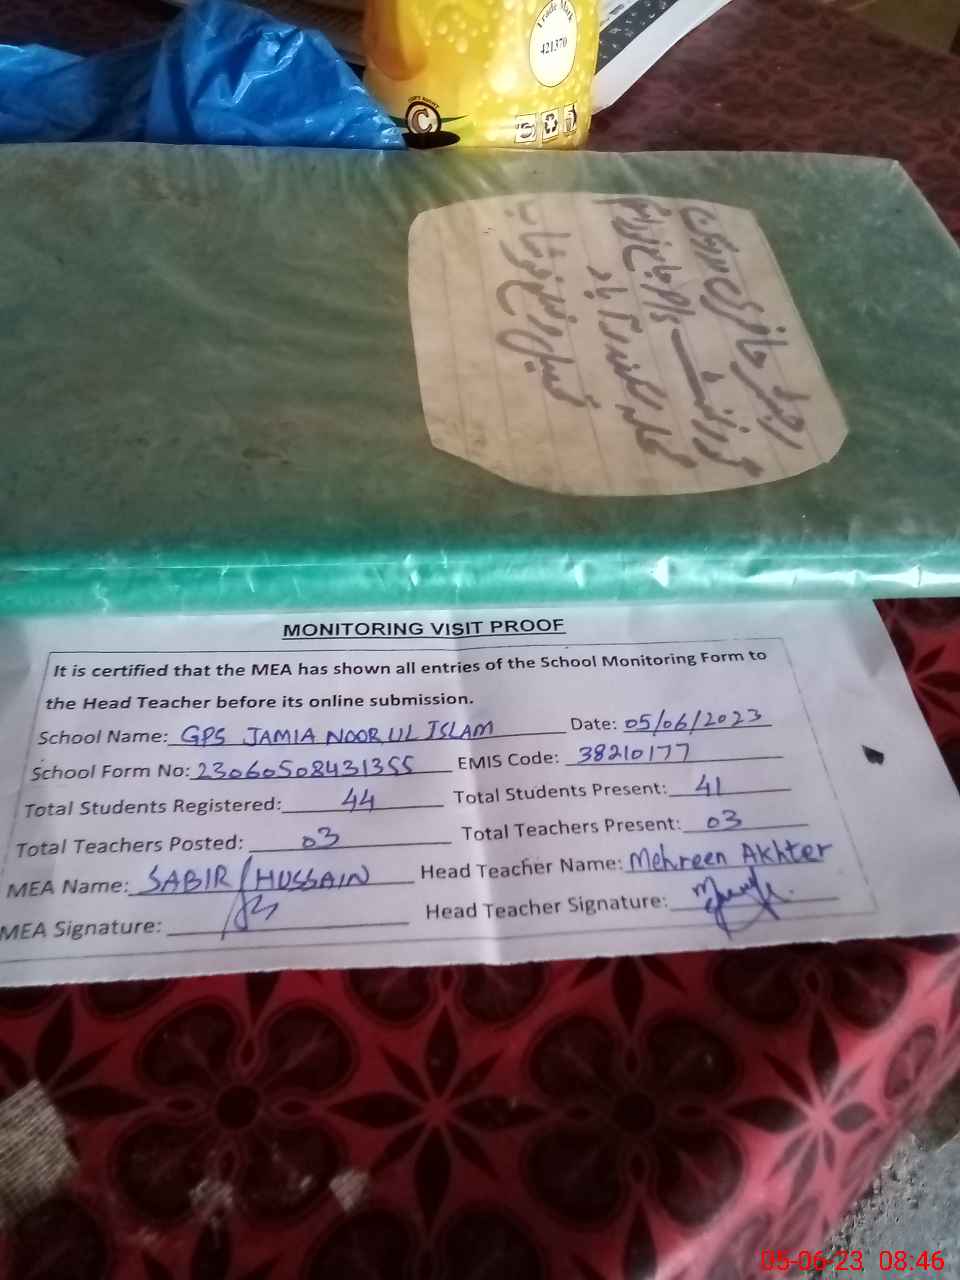 Trade Mark
421370
C
رجسٹر حاضری
گورنمنٹ
MONITORING VISIT PROOF
It is certified that the MEA has shown all entries of the School Monitoring Form to
the Head Teacher before its online submission.
School Name: GPS JAMIA NOOR UL ISLAM Date: 05/06/2023
School Form No: 23060508431355 EMIS Code: 38210177
Total Students Registered: 44 Total Students Present: 41
Total Teachers Posted: 03 Total Teachers Present: 03
MEA Name: SABIR HUSSAIN Head Teacher Name: Mehreen Akhter
MEA Signature: Head Teacher Signature:
05-06-23 08:46